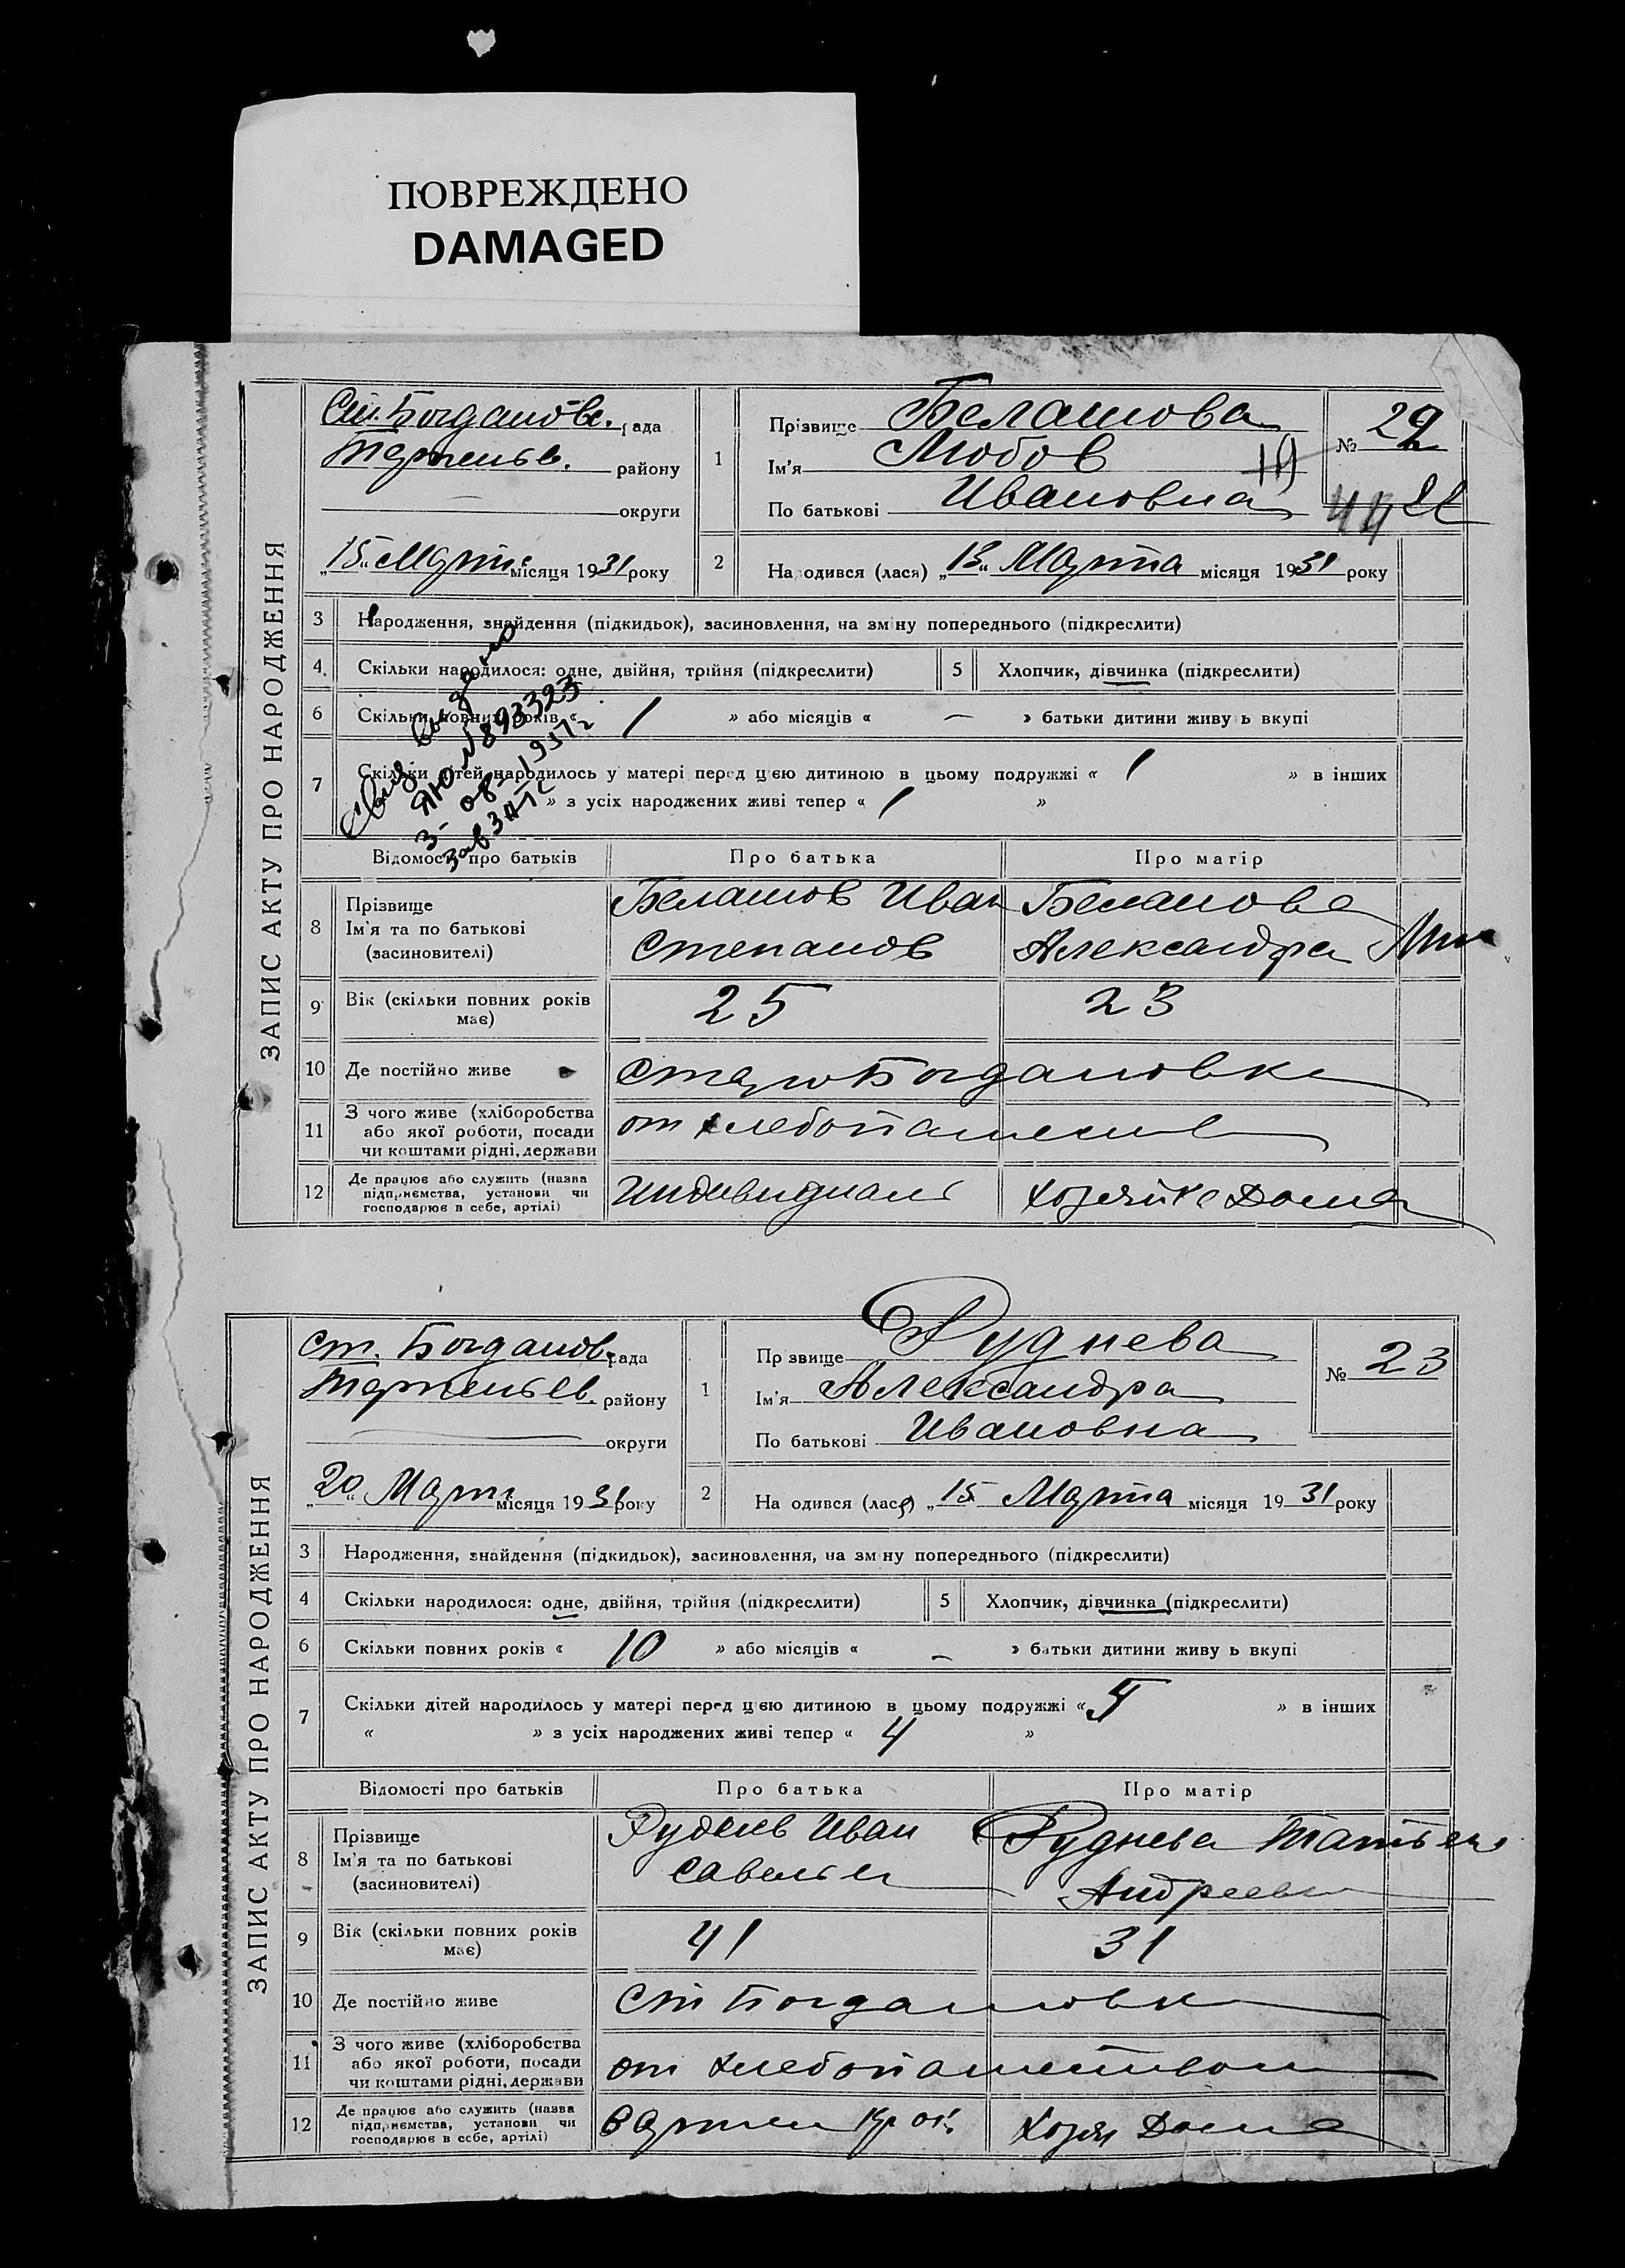 ПОВРЕЖДЕНО
DAMAGED
ЗАПИС АКТУ ПРО НАРОДЖЕННЯ
Ст. Богдановс. рада
району
округи
"15" Март місяця 1931 року
1
Прізвище Белашова
Ім'я Любов
По батькові Ивановна
№ 22
44
2
Народився (лася) "13" Марта місяця 1931 року
3 Народження, знайдення (підкидьок), засиновлення, на зміну попереднього (підкреслити)
4. Скільки народилося: одне, двійня, трійня (підкреслити) 5 Хлопчик, дівчинка (підкреслити)
6 Скільки повних років « 1 » або місяців « — » батьки дитини живуть вкупі
7 Скільки дітей народилось у матері перед цією дитиною в цьому подружжі « 1 » в інших
» з усіх народжених живі тепер « 1 »
Свид выдано
ЯЮ № 893323
3- 08-1957г
зав ЗАГС
Відомості про батьків Про батька Про матір
8 Прізвище
Ім'я та по батькові
(засиновителі)
Белашов Иван
Степанов
Белашова
Александра
9 Вік (скільки повних років
має)
25 23
10 Де постійно живе СтароБогдановка
11 З чого живе (хліборобства
або якої роботи, посади
чи коштами рідні, держави
от хлебопашеств
12 Де працює або служить (назва
підприємства, установи чи
господарює в себе, артілі)
Индивидуаль Хозяйка Дома
ЗАПИС АКТУ ПРО НАРОДЖЕННЯ
ст. Богданов. рада
району
округи
"20" Март місяця 1931 року
1
Прізвище Руднева
Ім'я Александра
По батькові Ивановна
№ 23
2
Народився (лася) "15 Марта місяця 1931 року
3 Народження, знайдення (підкидьок), засиновлення, на зміну попереднього (підкреслити)
4 Скільки народилося: одне, двійня, трійня (підкреслити) 5 Хлопчик, дівчинка (підкреслити)
6 Скільки повних років « 10 » або місяців « – » батьки дитини живуть вкупі
7 Скільки дітей народилось у матері перед цією дитиною в цьому подружжі « 5 » в інших
« » з усіх народжених живі тепер « 4 »
Відомості про батьків Про батька Про матір
8 Прізвище
Ім'я та по батькові
(засиновителі)
Руднев Иван
Савельев
Руднева Татьяна
Андреевн
9 Вік (скільки повних років
має)
41 31
10 Де постійно живе Ст Богдановка
11 З чого живе (хліборобства
або якої роботи, посади
чи коштами рідні, держави
от хлебопашеством
12 Де працює або служить (назва
підприємства, установи чи
господарює в себе, артілі)
В артели Хозяй Дома